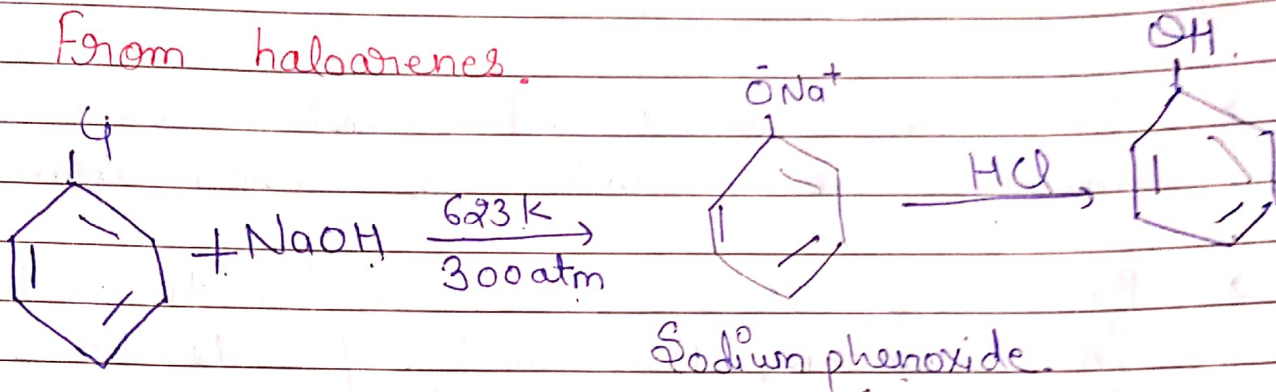 From haloarenes.
Cl
+ NaOH
623 K
300 atm
ŌNa⁺
HCl
OH.
Sodium phenoxide.